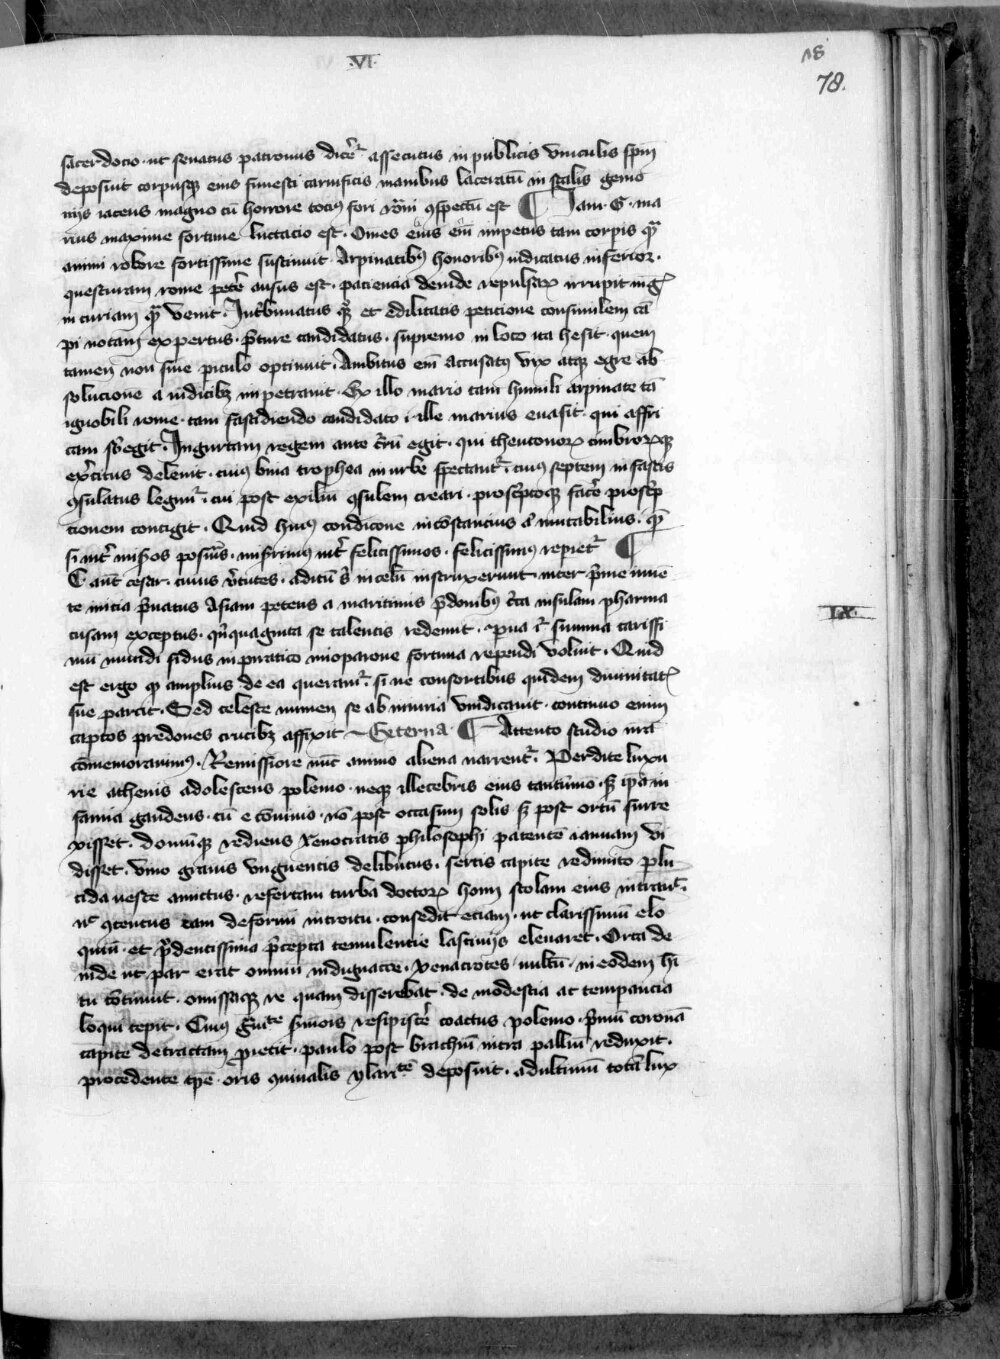 .VI.
18
78.
sacerdocio · ut senatus patronus dicer̃ assecutus in publicis vinculis sp̃m
deposuit corpusq̃ eius funesti carnificis manibus laceratũ in scalis gemo
nijs iacens magno cũ horrore tocius fori rõni ɔspectũ est ¶ Jam · G · ma
rius maxime fortune luctacio est · Om̃es eius em̃ impetus tam corpis q̃
animi robore fortissime sustinuit · Arpinatibus honoribus iudicatus inferior ·
questuram rome peter̃ ausus est · paciencia deinde repulsaꝝ irrupit mg̃
in curiam q̃ venit · In tribunatus q̨ et Edilitatis peticione consimilem cã
pi notam expertus · p̃ture candidatus · supremo in loco ita hesit · quem
tamen non sine piculo optinuit · Ambitus em̃ accusatus vix atq̃ egre ab
solucionẽ a iudicibꝫ impetrauit · Ex illo mario tam humili arpinate tã
ignobili rome · tam fastidiendo candidato · ille marius euasit · qui affri
cam sb̃egit · Iugurtam regem ante cr̃rũ egit · qui theutonoꝝ cimbroꝝq̃
exc̃itus deleuit · cuius bina trophea in urbe spectant̃ · cuius septem in fastis
ɔsulatus legunt̃ · cui post exiliũ ɔsulem creari · proscp̃toq̃ facer̃ proscp̃
tionem contigit · Quid huius condicone incõstancius aͭ mutabilius · quẽ
si int̃ miseros posueris · miserrimus int̃ felicissimos · felicissimus repiet̃ ¶
C aut̃ cesar · cuius v̓tutes · aditũ s̓ in celũ instruxerunt inter p̃me iuuẽ
te inicia p̃uatus Asiam petens a maritimis p̃donibus cr̃ca insulam pharma
cusam exceptus · q̃nquaginta se talentis redemit · pua i͛ summa carissi
mũ mundi sidus in piratico mioparone fortuna rependi voluit · Quid
est ergo ꝙ amplius de ea queram̃ · si ne consortibus quidem diuinitat͛
sue parcit · Sed celeste numen se ab iniuria vindicauit · continuo enim
captos predones crucibꝫ affixit ~ Externa · ¶ Attento studio nr̃a
cõmemorauimus · Remissiore nũc animo aliena narrent̃ · Perdite luxu
rie athenis adolescens polemo · neq̃ illecebris eius tantũmo · sꝫ ip̃a in
famia gaudens · cũ e conuiuio · nõ post occasum solis sꝫ post ortũ surre
xisset · domũq̃ rediens Xenocratis philosophi patentẽ ianuam vi
disset · vino grauis vnguentis delibutus · sertis capite redimito plu
cida ueste amictus · refertam turba doctoꝝ homi scolam eius intrauit ·
nͨ ɔtentus tam deformi introitu · consedit eciam · ut clarissimũ elo
quiũ · et p̓dentissima p̃cepta temulentie lasciuijs eleuaret · Orta de
inde ut par erat omniũ indignacõe · Xenacrotes uultũ · in eodem hi
tu cõtinuit · omissaq̃ re quam disserebat · de modestia ac tempancia
loqui cepit · Cuius g̃uite sermois resipiscer̃ coactus polemo · p̃mũ coronã
capite detractam p̓iecit · paulo post brachiũ intra palliũ reduxit ·
procedente tp̃e · oris ɔuiualis ylaritẽ deposuit · adultimũ totã lux
IX.